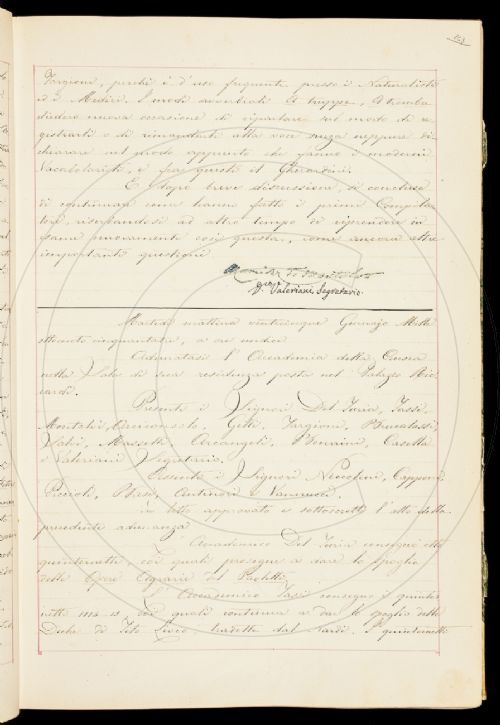 Targioni, perchè è d'uso frequente presso i Naturalisti
ed i Medici. I modi avverbiali A truppe, A tromba
diedero nuova occasione di riparlare sul modo di re-
gistrarli o di rimandarli alla voce senza neppure di-
chiarare nel modo appunto che fanno i moderni
Vocabolaristi, e fra questi il Gherardini.
E dopo breve discussione, si concluse
di continuar come hanno fatto i primi Compila-
tori, riserbandosi ad altro tempo di riprendere in
esame nuovamente così questa, come ancora altre
importanti questioni.
V. Valeriani Segretario.
Martedì mattina venticinque Gennajo Mille
ottocento cinquantatre, a ore undici
Adunatasi l'Accademia della Crusca
nelle Sale di sua residenza poste nel Palazzo Ric-
cardi.
Presenti i Signori Del Furia, Tassi,
Montalvi, Arciconsolo, Gelli, Targioni, Brucalassi,
Salvi, Masselli, Arcangeli, Casella
e Valeriani Segretario.
Assenti i Signori Niccolini, Capponi,
Puccioli, Bresci, Antinori e Vannucci.
fu letto approvato e sottoscritto l'atto della
precedente adunanza
L'Accademico Del Furia consegnò otto
quinternetti, coi quali prosegue a dare lo spoglio
delle Opere Agrarie del Paoletti.
L'Accademico Tassi consegnò i quinter-
netti coi quali continua a dar lo spoglio delle
Deche di Tito Livio tradotte dal Nardi. I quinternetti